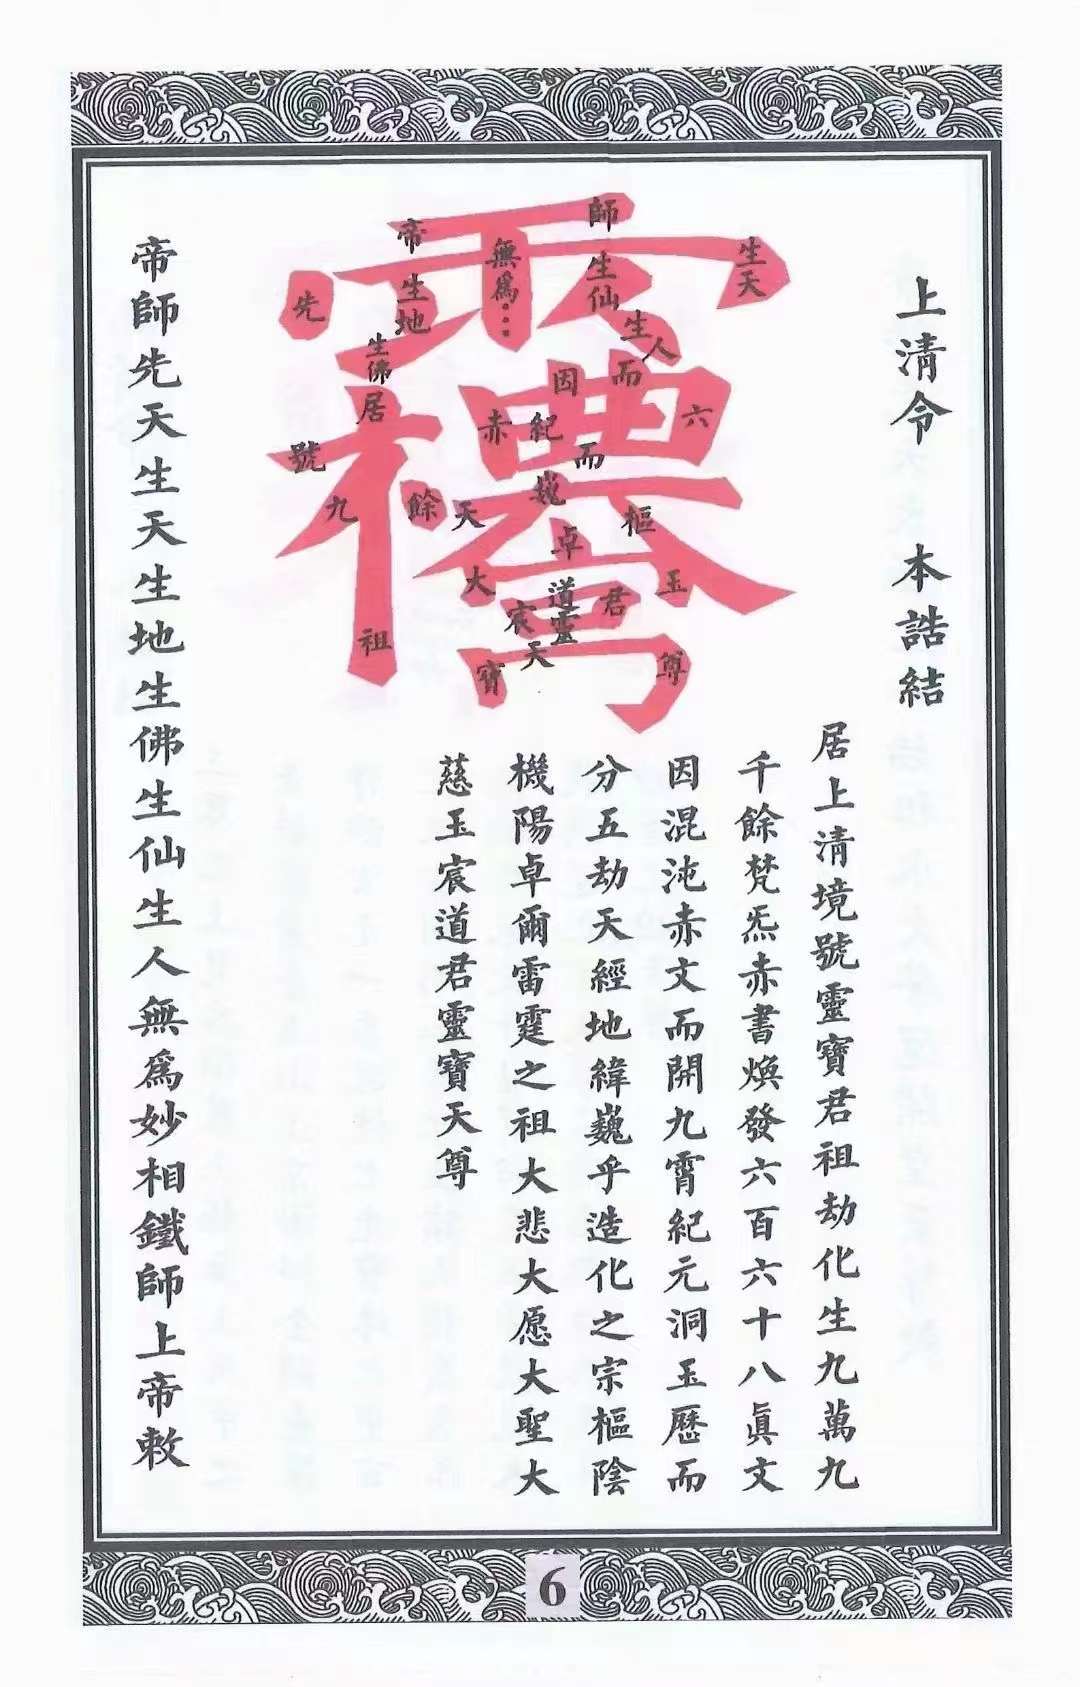 上清令 本誥結
居上清境號靈寶君祖劫化生九萬九
千餘梵炁赤書煥發六百六十八眞文
因混沌赤文而開九霄紀元洞玉歷而
分五劫天經地緯巍乎造化之宗樞陰
機陽卓爾雷霆之祖大悲大愿大聖大
慈玉宸道君靈寶天尊
師生仙生人而
生天
無爲
帝生地
生佛居
先
因紀
赤
而
六
巍
號
九
餘
天
樞
卓
大
道靈
君
玉
宸天
祖
寶
尊
帝師先天生天生地生佛生仙生人無爲妙相鐵師上帝敕
6